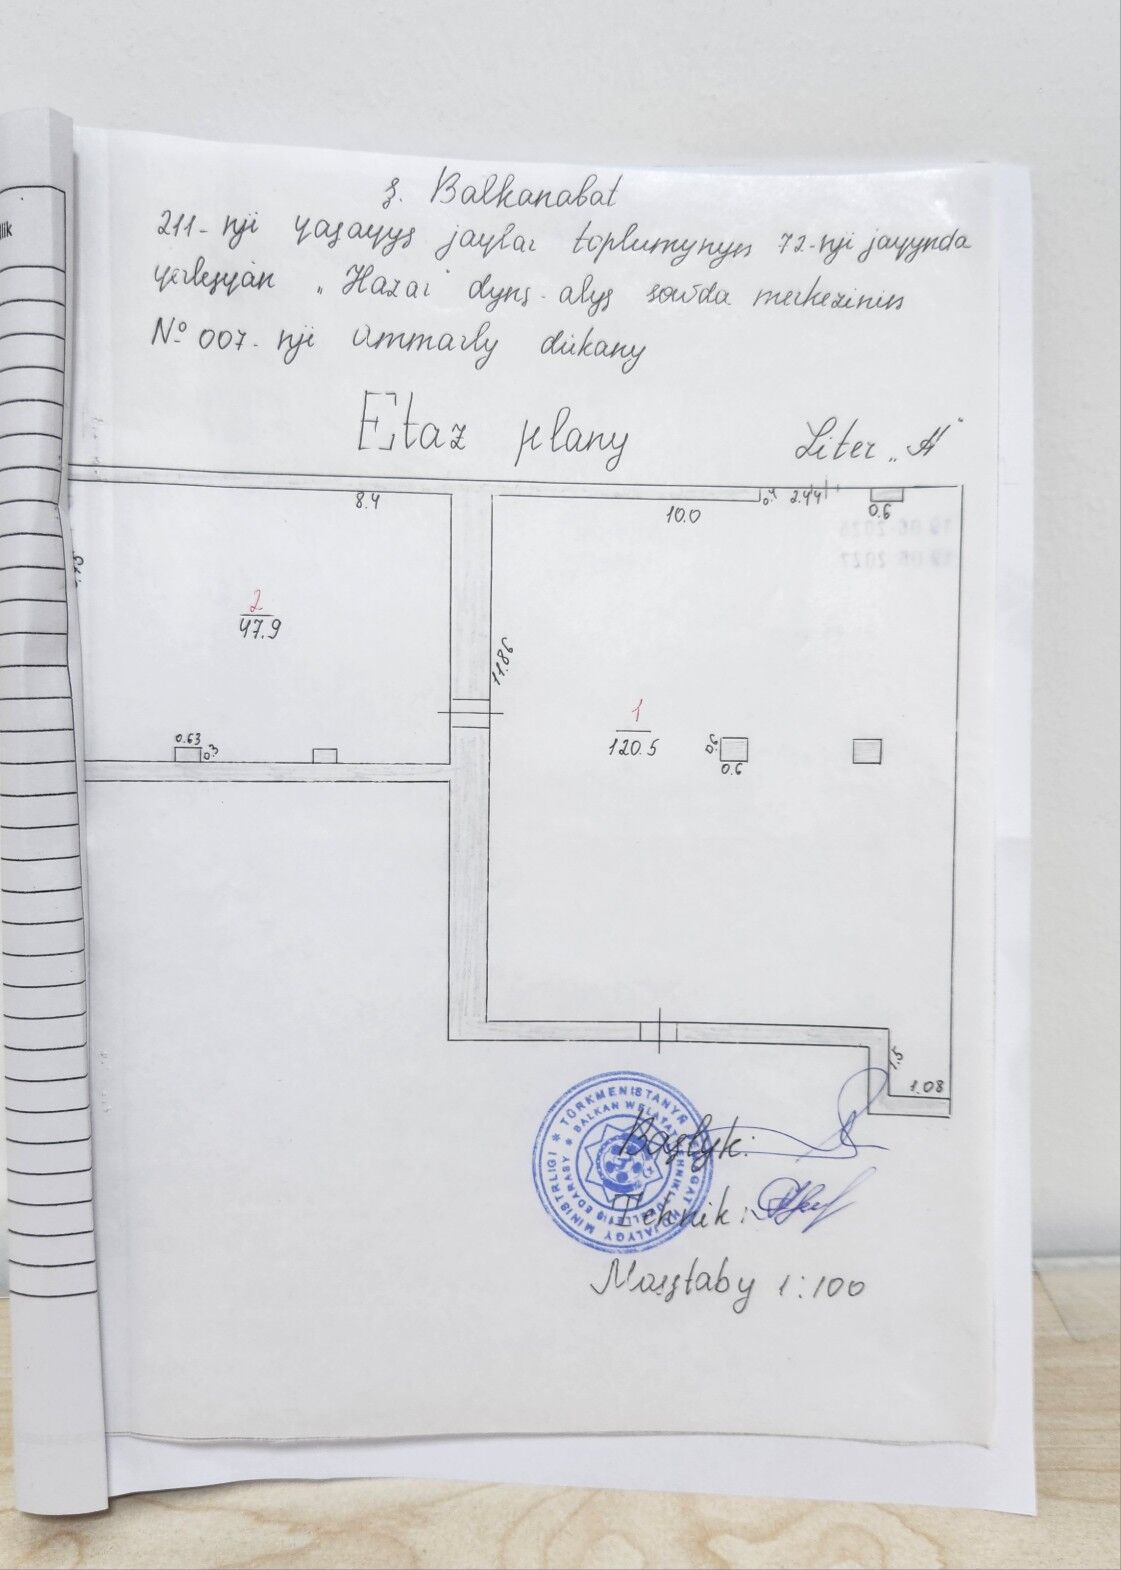 ş. Balkanabat
211-nji ýaşaýyş jaýlar toplumynyň 72-nji jaýynda
ýerleşýän "Hazar" dynç-alyş söwda merkeziniň
№ 007-nji ammarly dükany
Etaž plany
Liter "A"
8.4
10.0
0.4
2.44
0.6
2
47.9
11.86
1
120.5
0.63
0.3
0.6
0.6
1.5
1.08
Başlyk:
Tehnik:
Masştaby 1:100
TÜRKMENISTANYŇ
MINISTRLIGI
BALKAN WELAÝAT
EDARASY
lik